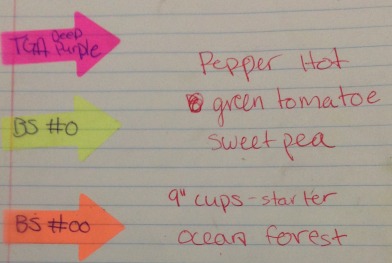 TGA Deep
Purple
Pepper Hot
green tomatoe
BS #0
sweet pea
9" cups - starter
BS #00
ocean forest